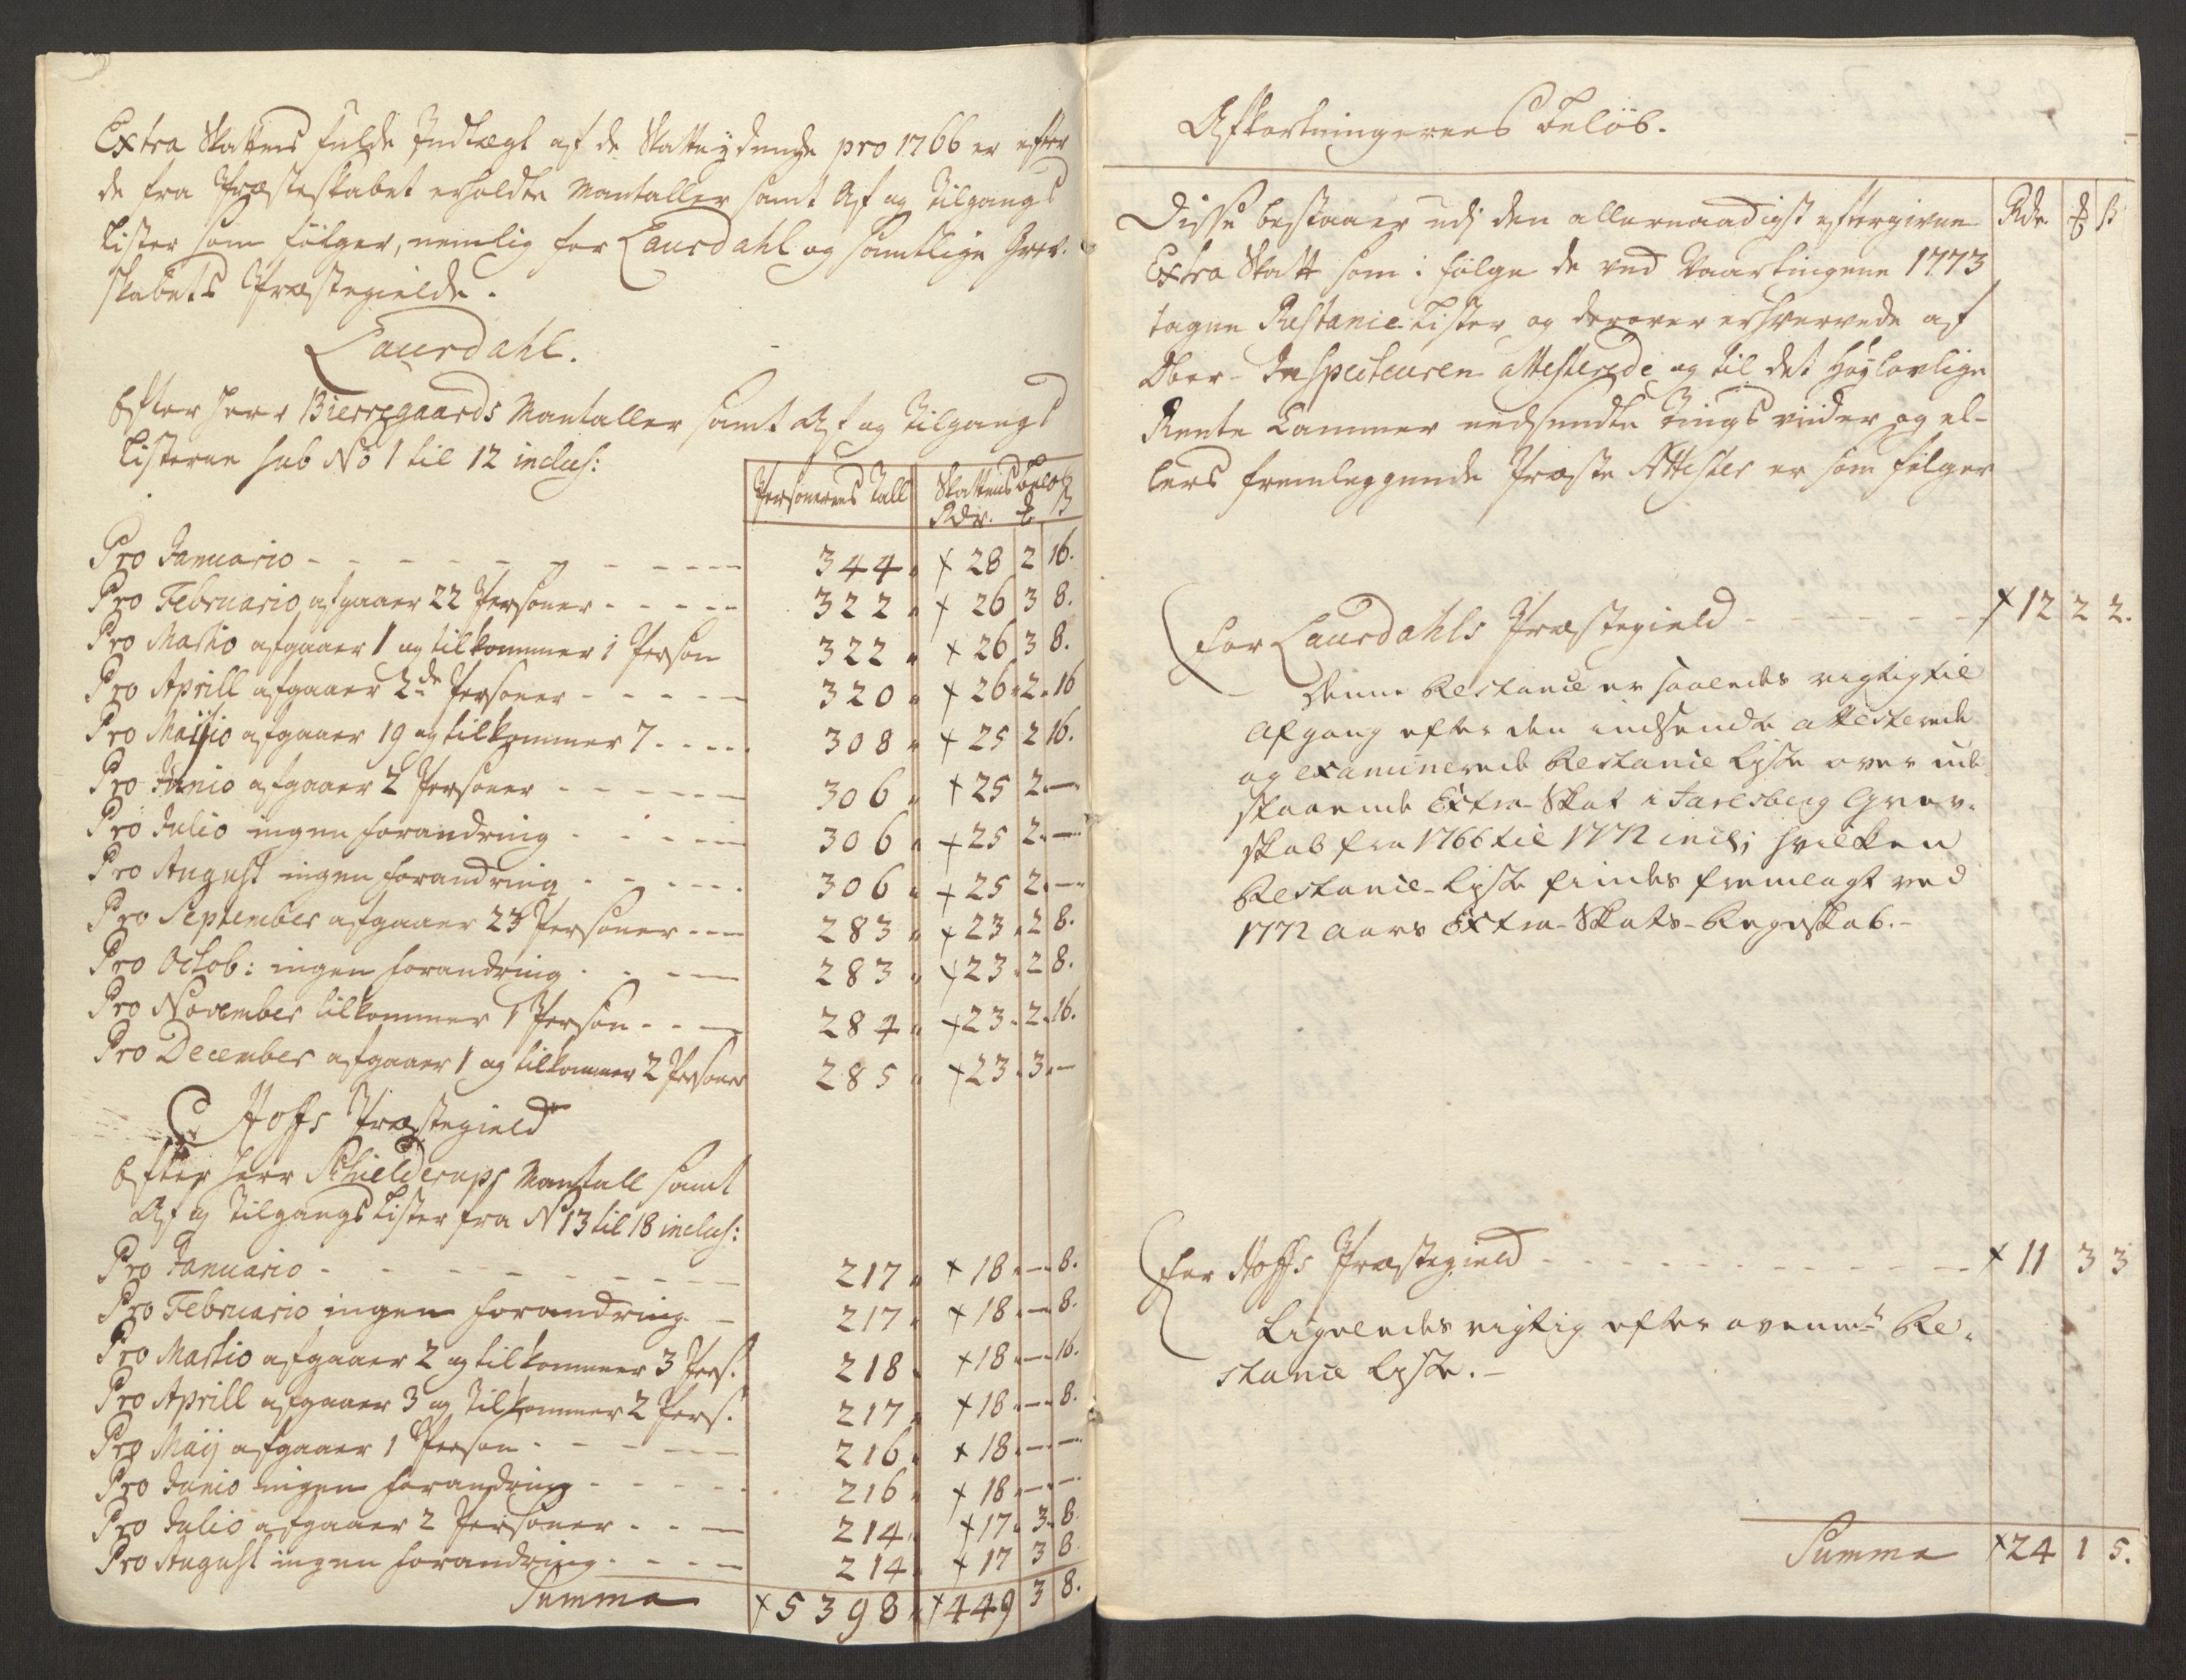 Extra Skattens fulde Indtægt af de Skatteydende pro 1766 er efter
de fra Præsteskabet erholdte Mantaller samt Af og Tilgangs
Lister som følger, nemlig for Laurdahl og samtlige Grev-
skabets Præstegielde.
Laurdahl.
Efter Herr Bierregaards Mantaller samt Af og Tilgangs
Listerne sub No 1 til 12 inclus:
Personernes Tall Skattens Beløb
Rdr. ß
Pro Januario - - - 344 " × 28 2 16.
Pro Februario afgaaer 22 Personer - - - 322 " × 26 3 8.
Pro Martio afgaaer 1 og tilkommer 1 Person 322 " × 26 3 8.
Pro Aprill afgaaer 2de Personer - - - 320 " × 26 " 2 " 16
Pro Maijio afgaaer 19 og tilkommer 7 - - - 308 " × 25 2 16.
Pro Junio afgaaer 2 Personer - - - 306 " × 25 2 " —
Pro Julio ingen forandring - - - 306 " × 25 2 " —
Pro August ingen forandring - - - 306 " × 25 2 " —
Pro September afgaaer 23 Personer - - - 283 " × 23 " 2 8.
Pro Octob: ingen forandring - - - 283 " × 23 " 2 8.
Pro November tilkommer 1 Person - - - 284 " × 23 " 2 " 16.
Pro December afgaaer 1 og tilkommer 2 Personer 285 " × 23 " 3 " —
Hoffs Præstegield
Efter Herr Schielderups Mantall samt
Af og Tilgangs Lister fra No 13 til 18 inclus:
Pro Januario - - - 217 " × 18 " — " 8.
Pro Februario ingen forandring - 217 " × 18 " — " 8.
Pro Martio afgaaer 2 og tilkommer 3 Pers. 218 " × 18 " — " 16.
Pro Aprill afgaaer 3 og Tilkommer 2 Pers. 217 " × 18 " — " 8.
Pro Maij afgaaer 1 Person - - - 216 " × 18 " — " —
Pro Junio ingen forandring - - - 216 " × 18 " — " —
Pro Julio afgaaer 2 Personer - - - 214 " × 17 " 3 " 8.
Pro August ingen forandring - - - 214 " × 17 3 8.
Summa × 5398 " × 449 3 8.
Afkortningernes Beløb.
Disse bestaaer udj den allernaadigst eftergivne Rdr ß
Extra Skatt som i følge de ved Vaartingene 1773
tagne Restance Lister og derover erhvervede af
Ober-Inspecteuren attesterede og til det Høylovlige
Rente Cammer nedsendte Tings vidner og el-
lers fremleggende Præste Attester er som følger
For Laurdahls Præstegield - - - × 12 2 2.
Denne Restance er saaledes rigtig til
Afgang efter den indsendte attesterede
og examinerede Restance Lyste over ude
staaende Extra-Skat i Jarlsberg Grev-
skab fra 1766 til 1772 incl; hvilken
Restance-Lyste findes fremlagt ved
1772 Aars Extra-Skats-Regnskab.-
For Hoffs Præstegield - - - × 11 3 3
Ligeledes rigtig efter ovenmte Re-
stance Lyste.-
Summa × 24 1 5.